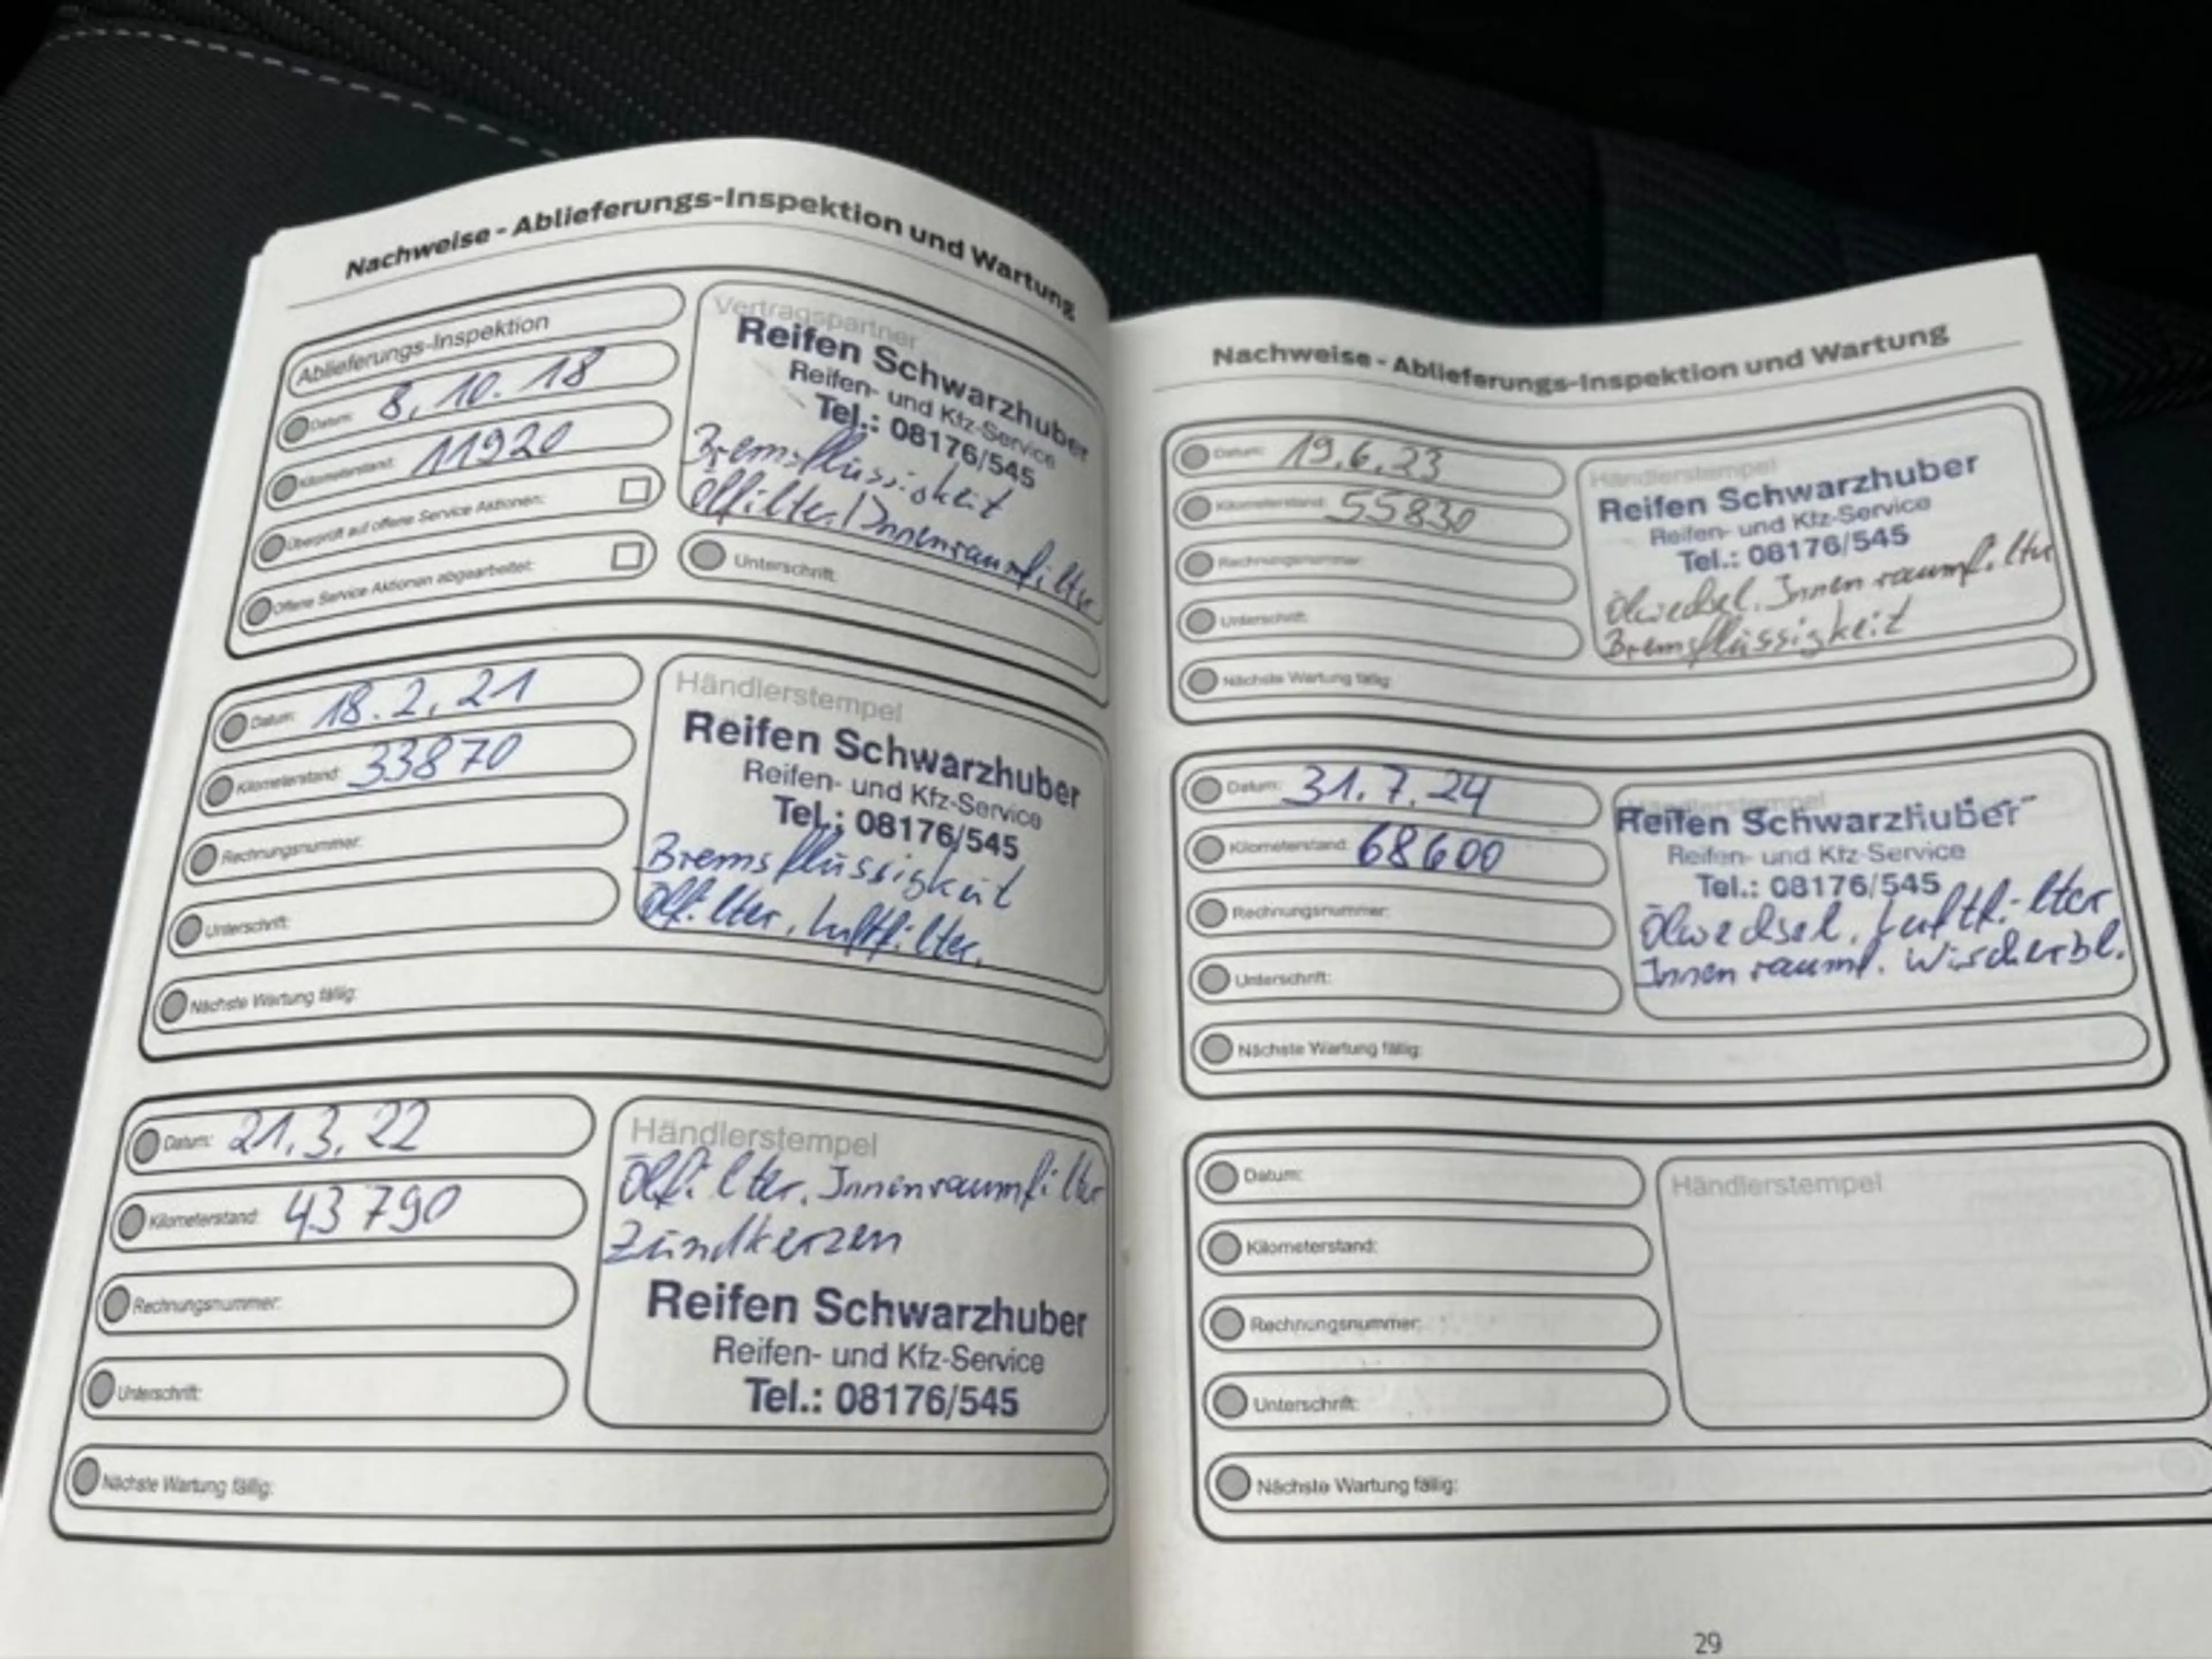 Nachweise - Ablieferungs-Inspektion und Wartung
Ablieferungs-Inspektion
Datum: 8.10.18
Kilometerstand: 11920
Überprüft auf offene Service Aktionen:
Offene Service Aktionen abgearbeitet:
Vertragspartner
Reifen Schwarzhuber
Reifen- und Kfz-Service
Tel.: 08176/545
Bremsflüssigkeit
Ölfilter/Innenraumfilter
Unterschrift:
Datum: 18.2.21
Kilometerstand: 33870
Rechnungsnummer:
Unterschrift:
Händlerstempel
Reifen Schwarzhuber
Reifen- und Kfz-Service
Tel.: 08176/545
Bremsflüssigkeit
Ölfilter, Luftfilter.
Nächste Wartung fällig:
Datum: 21.3.22
Kilometerstand: 43790
Rechnungsnummer:
Unterschrift:
Händlerstempel
Ölfilter, Innenraumfilter
Zündkerzen
Reifen Schwarzhuber
Reifen- und Kfz-Service
Tel.: 08176/545
Nächste Wartung fällig:
Nachweise - Ablieferungs-Inspektion und Wartung
Datum: 19.6.23
Kilometerstand: 55830
Rechnungsnummer:
Unterschrift:
Händlerstempel
Reifen Schwarzhuber
Reifen- und Kfz-Service
Tel.: 08176/545
Ölwechsel, Innenraumfilter
Bremsflüssigkeit
Nächste Wartung fällig:
Datum: 31.7.24
Kilometerstand: 68600
Rechnungsnummer:
Unterschrift:
Händlerstempel
Reifen Schwarzhuber
Reifen- und Kfz-Service
Tel.: 08176/545
Ölwechsel, Luftfilter
Innenraumf. Wischerbl.
Nächste Wartung fällig:
Datum:
Kilometerstand:
Rechnungsnummer:
Unterschrift:
Händlerstempel
Nächste Wartung fällig:
29